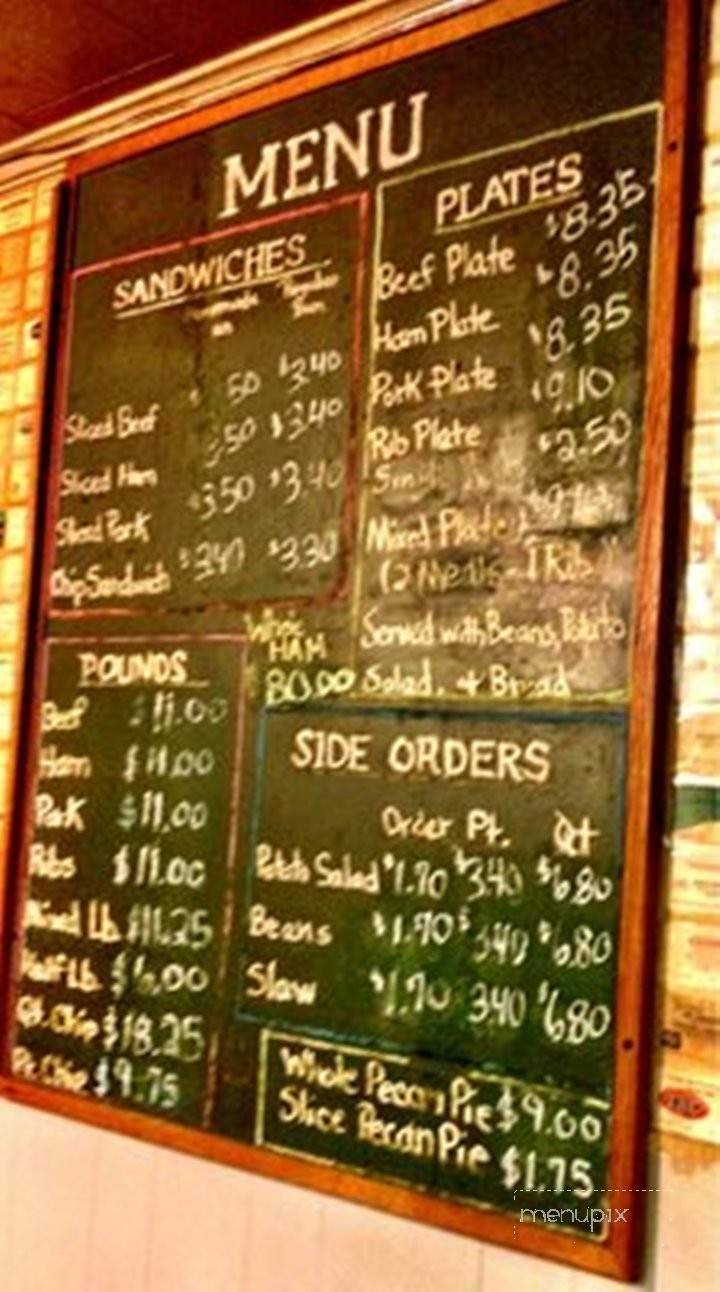 MENU
SANDWICHES
Homemade Regular
Bun Bun
Sliced Beef 50 $3.40
Sliced Ham 3.50 $3.40
Sliced Pork $3.50 $3.40
Chip Sandwich $3.40 $3.30
PLATES
Beef Plate $8.35
Ham Plate $8.35
Pork Plate $8.35
Rib Plate $9.10
$2.50
Mixed Plate
(2 Meats - 1 Rib)
Served with Beans, Potato
Salad, & Bread
Whole
HAM
80.00
POUNDS
Beef $11.00
Ham $11.00
Pork $11.00
Ribs $11.00
Mixed Lb. $11.25
Half Lb. $6.00
Qt. Chip $18.25
Pt. Chip $9.75
SIDE ORDERS
Order Pt. Qt
Potato Salad $1.70 $3.40 $6.80
Beans $1.70 $3.40 $6.80
Slaw $1.70 3.40 $6.80
Whole Pecan Pie $9.00
Slice Pecan Pie $1.75
menupix